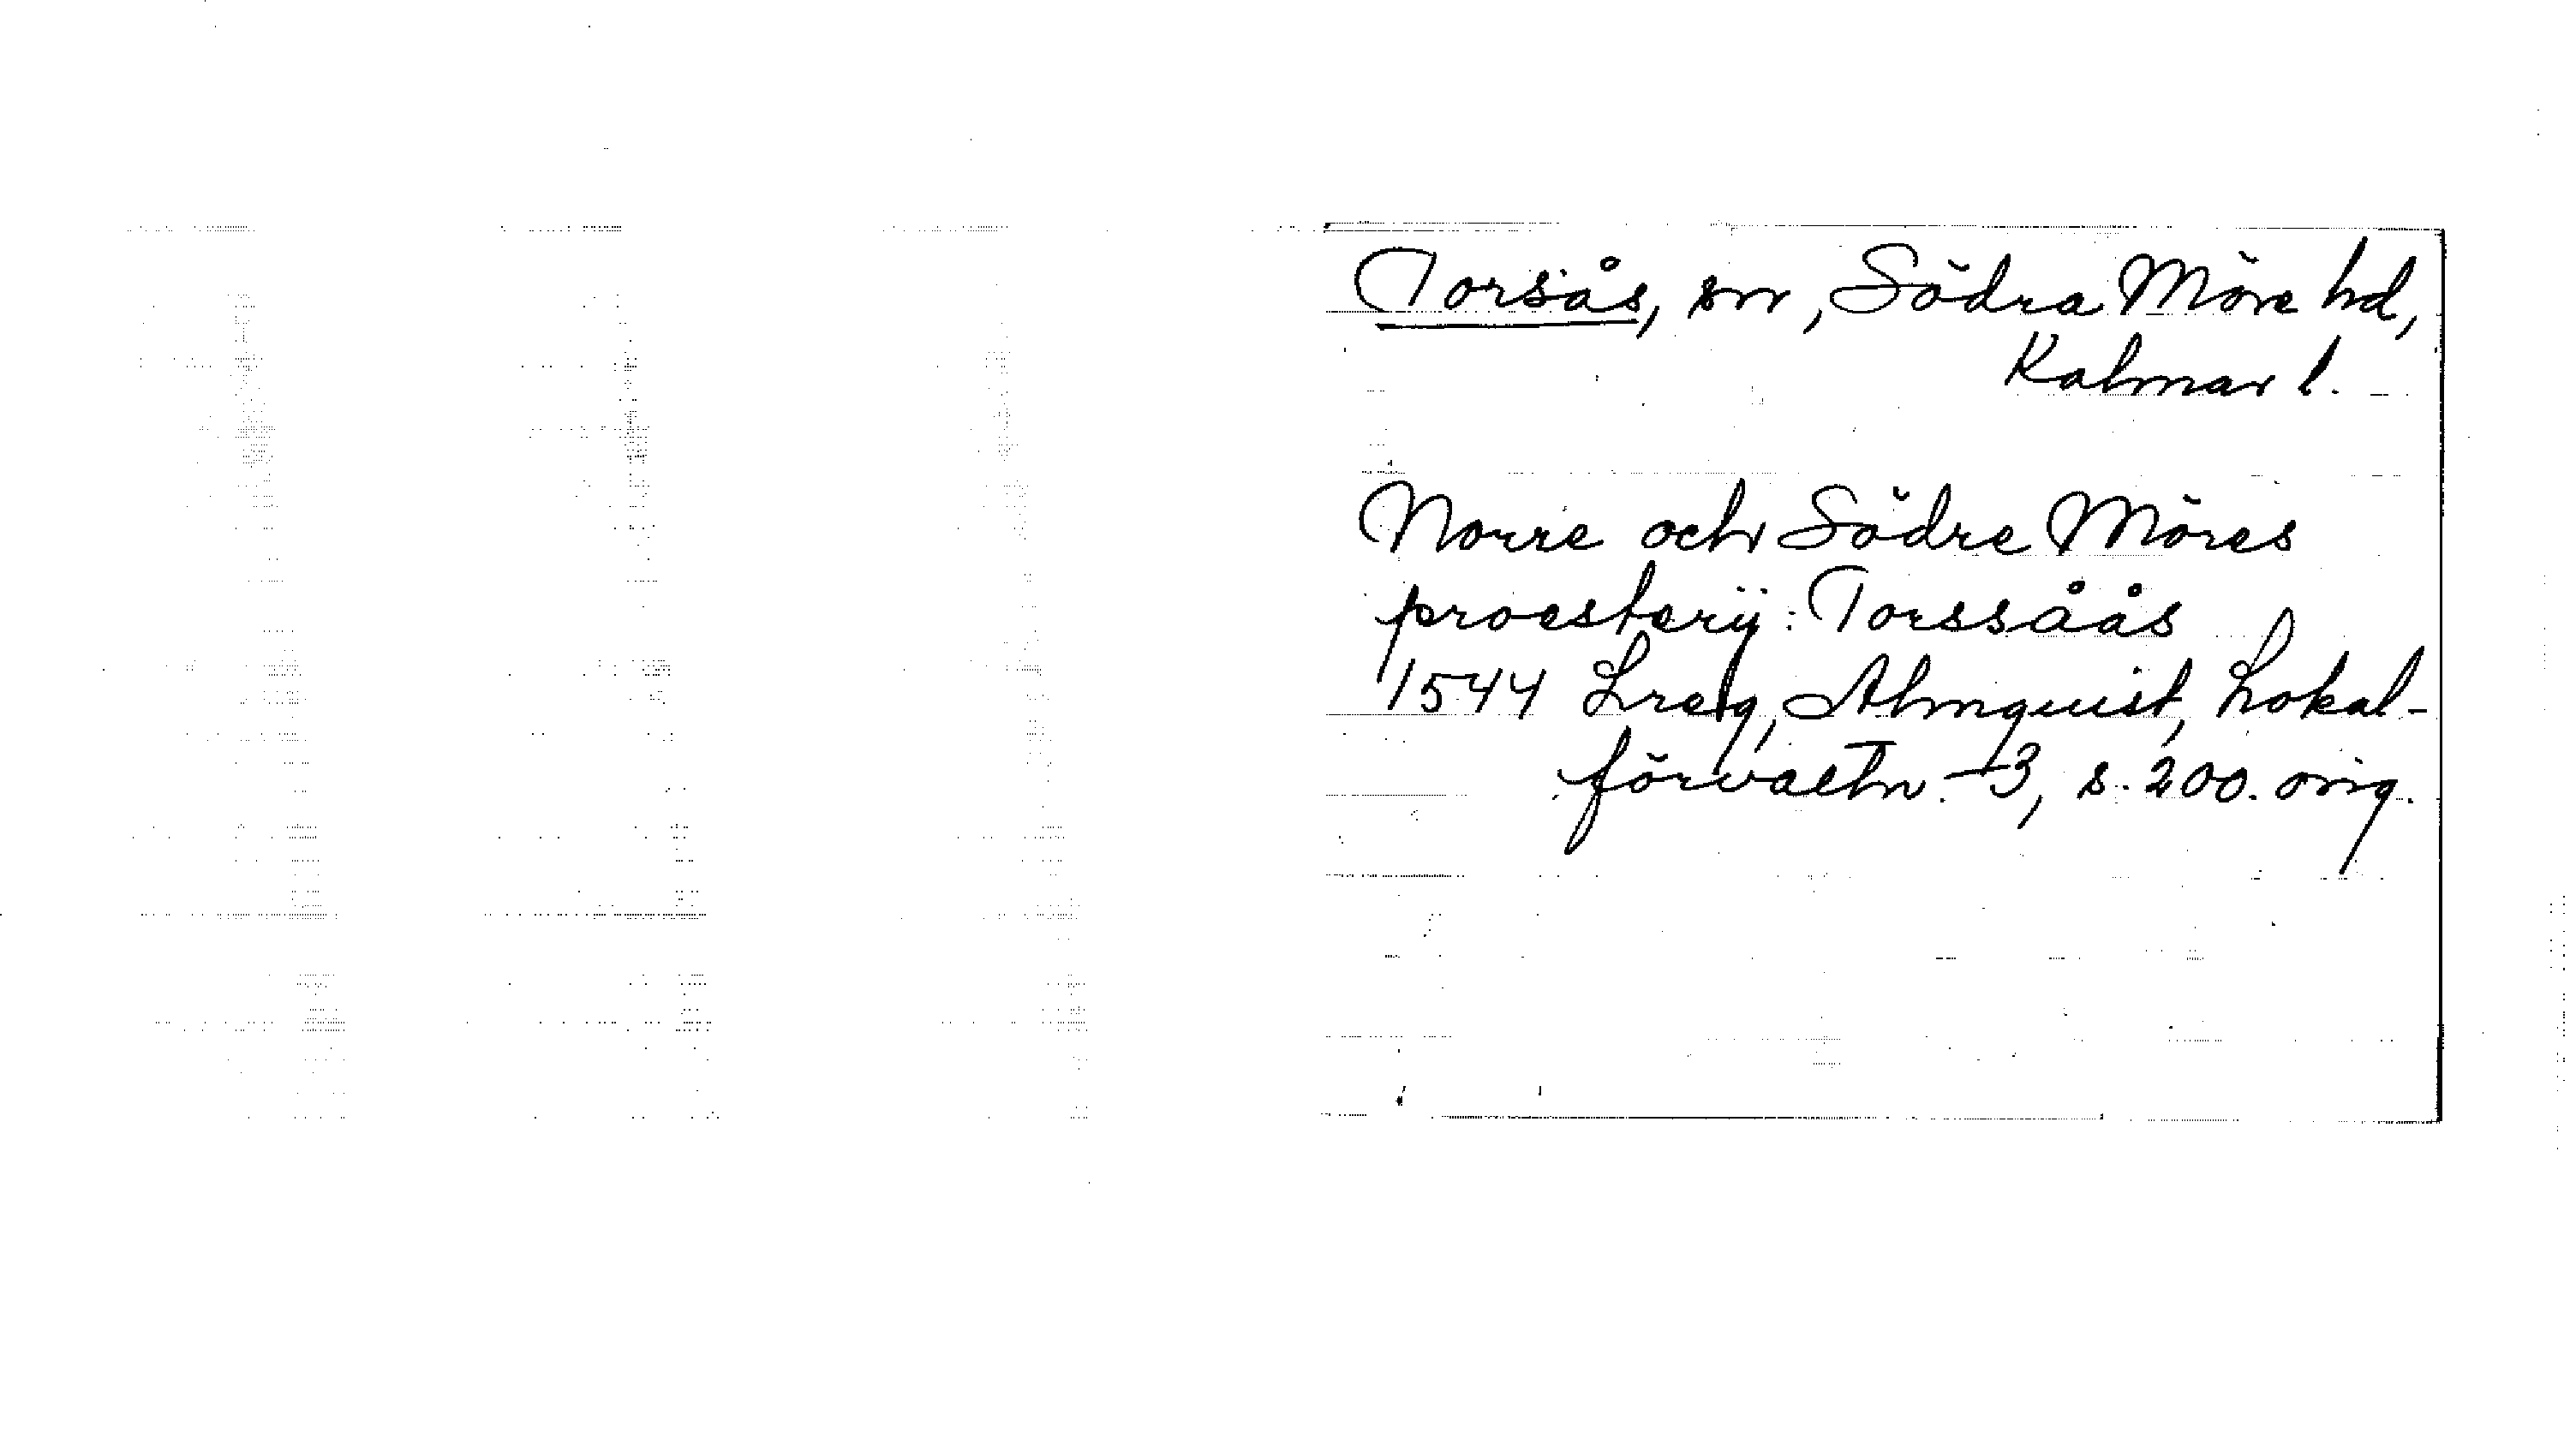 Torsås, sn, Södra Möre hd,
Kalmar l.
Norre och Södre Möres
proesterij: Torssåås
1544 Lreg, Almquist, Lokal-
förvaltn. 3, s. 200. orig.